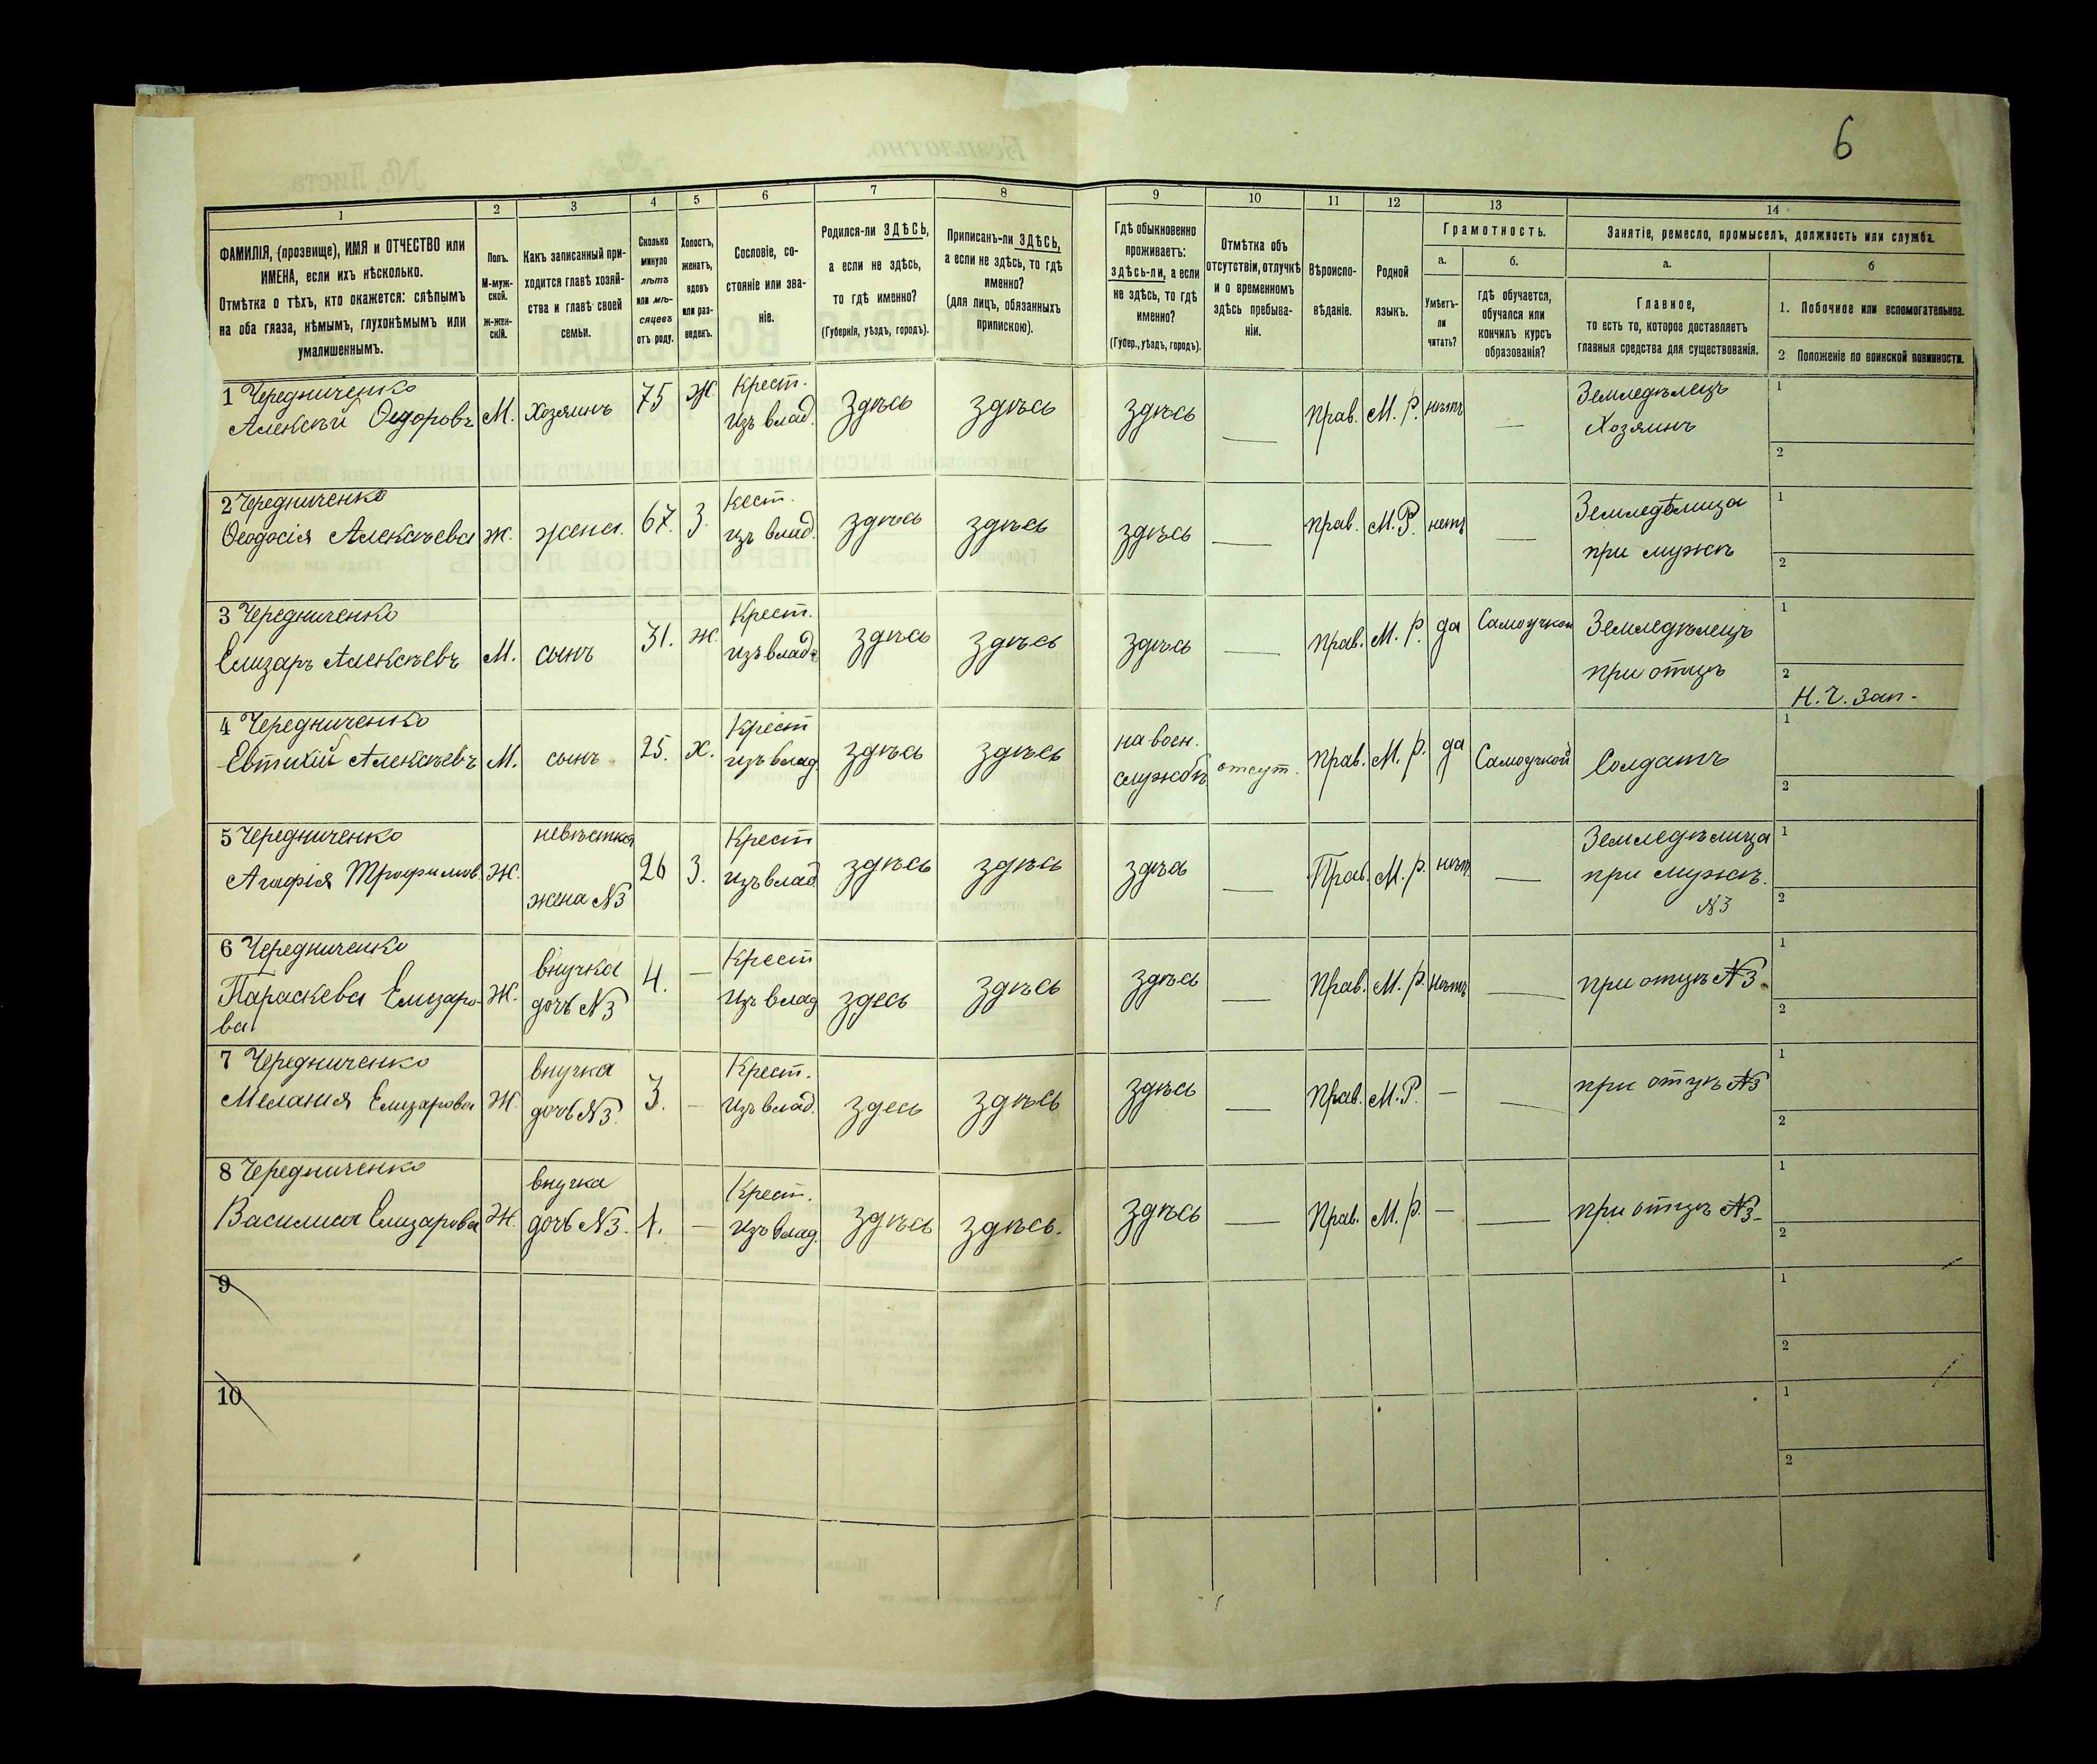 6
1 2 3 4 5 6 7 8 9 10 11 12 13 14
ФАМИЛІЯ, (прозвище), ИМЯ и ОТЧЕСТВО или
ИМЕНА, если ихъ нѣсколько.
Отмѣтка о тѣхъ, кто окажется: слѣпымъ
на оба глаза, нѣмымъ, глухонѣмымъ или
умалишеннымъ.
Полъ.
М-муж-
ской.
ж-жен-
скій.
Какъ записанный при-
ходится главѣ хозяй-
ства и главѣ своей
семьи.
Сколько
минуло
лѣтъ
или мѣ-
сяцевъ
отъ роду.
Холостъ,
женатъ,
вдовъ
или раз-
веденъ.
Сословіе, со-
стояніе или зва-
ніе.
Родился-ли ЗДѢСЬ,
а если не здѣсь,
то гдѣ именно?
(Губернія, уѣздъ, городъ).
Приписанъ-ли ЗДѢСЬ,
а если не здѣсь, то гдѣ
именно?
(для лицъ, обязанныхъ
припискою).
Гдѣ обыкновенно
проживаетъ:
здѣсь-ли, а если
не здѣсь, то гдѣ
именно?
(Губер., уѣздъ, городъ).
Отмѣтка объ
отсутствіи, отлучкѣ
и о временномъ
здѣсь пребыва-
ніи.
Вѣроиспо-
вѣданіе.
Родной
языкъ.
Грамотность.
а.
Умѣетъ-
ли
читать?
б.
гдѣ обучается,
обучался или
кончилъ курсъ
образованія?
Занятіе, ремесло, промыселъ, должность или служба.
а.
Главное,
то есть то, которое доставляетъ
главныя средства для существованія.
б
1. Побочное или вспомогательное.
2 Положеніе по воинской повинности.
1 Чередниченко Крест. Земледѣлецъ 1
Алексѣй Ѳедоровъ М. Хозяинъ 75 Ж. изъ влад. здѣсь здѣсь здѣсь — прав. М. р. нѣтъ — Хозяинъ
2
2 Чередниченко Кест. Земледѣлица 1
Ѳеодосія Алексѣева ж. жена. 67. З. изъ влад. здѣсь здѣсь здѣсь — прав. М. Р. нетъ — при мужѣ
2
3 Чередниченко Крест. Земледѣлецъ 1
Елизаръ Алексѣевъ М. сынъ 31. Ж. изъ влад. здѣсь здѣсь здѣсь — прав. М. р. да Самоучкой при отцѣ
2 Н. Ч. Зап.
4 Чередниченко Крест на воен. 1
Евтихій Алексѣевъ М. сынъ 25. Х. изъ влад. здѣсь здѣсь службѣ отсут. прав. М. р. да Самоучкой Солдатъ
2
5 Чередниченко невѣстка Крест Земледѣлица 1
Агафія Трофимов. Ж. жена №3 26 З. изъ влад. здѣсь здѣсь здѣсь — Прав. М. р. нѣтъ — при мужѣ.
№3 2
6 Чередниченко внучка Крест 1
Параскева Елизаро- Ж. дочь №3 4. — изъ влад здесь здѣсь здѣсь — Прав. М. р. нѣтъ — при отцѣ №3.
ва 2
7 Чередниченко внучка Крест. 1
Мелания Елизарова Ж. дочь №3. 3. — изъ влад. здесь здѣсь здѣсь — Прав. М. Р. — — при отцѣ №3
2
8 Чередниченко внучка Крест. 1
Василиса Елизарова Ж. дочь №3. 1. — изъ влад. здѣсь здѣсь. здѣсь — Прав. М. р. — — при отцѣ №3.
2
9 1
2
10 1
2